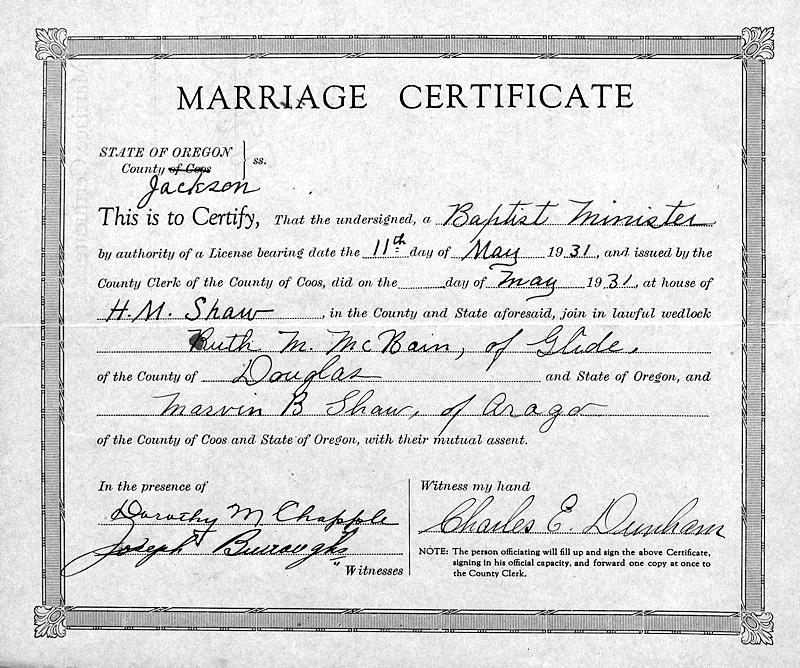 MARRIAGE CERTIFICATE
STATE OF OREGON
County of Coos
ss.
Jackson
This is to Certify, That the undersigned, a Baptist Minister
by authority of a License bearing date the 11th day of May 1931, and issued by the
County Clerk of the County of Coos, did on the day of May 1931, at house of
H. M. Shaw, in the County and State aforesaid, join in lawful wedlock
Ruth M. McBain, of Glide,
of the County of Douglas and State of Oregon, and
Marvin B Shaw, of Arago
of the County of Coos and State of Oregon, with their mutual assent.
In the presence of
Dorothy M Chapple
Joseph Burroughs
" Witnesses
Witness my hand
Charles E. Dunham
NOTE: The person officiating will fill up and sign the above Certificate,
signing in his official capacity, and forward one copy at once to
the County Clerk.